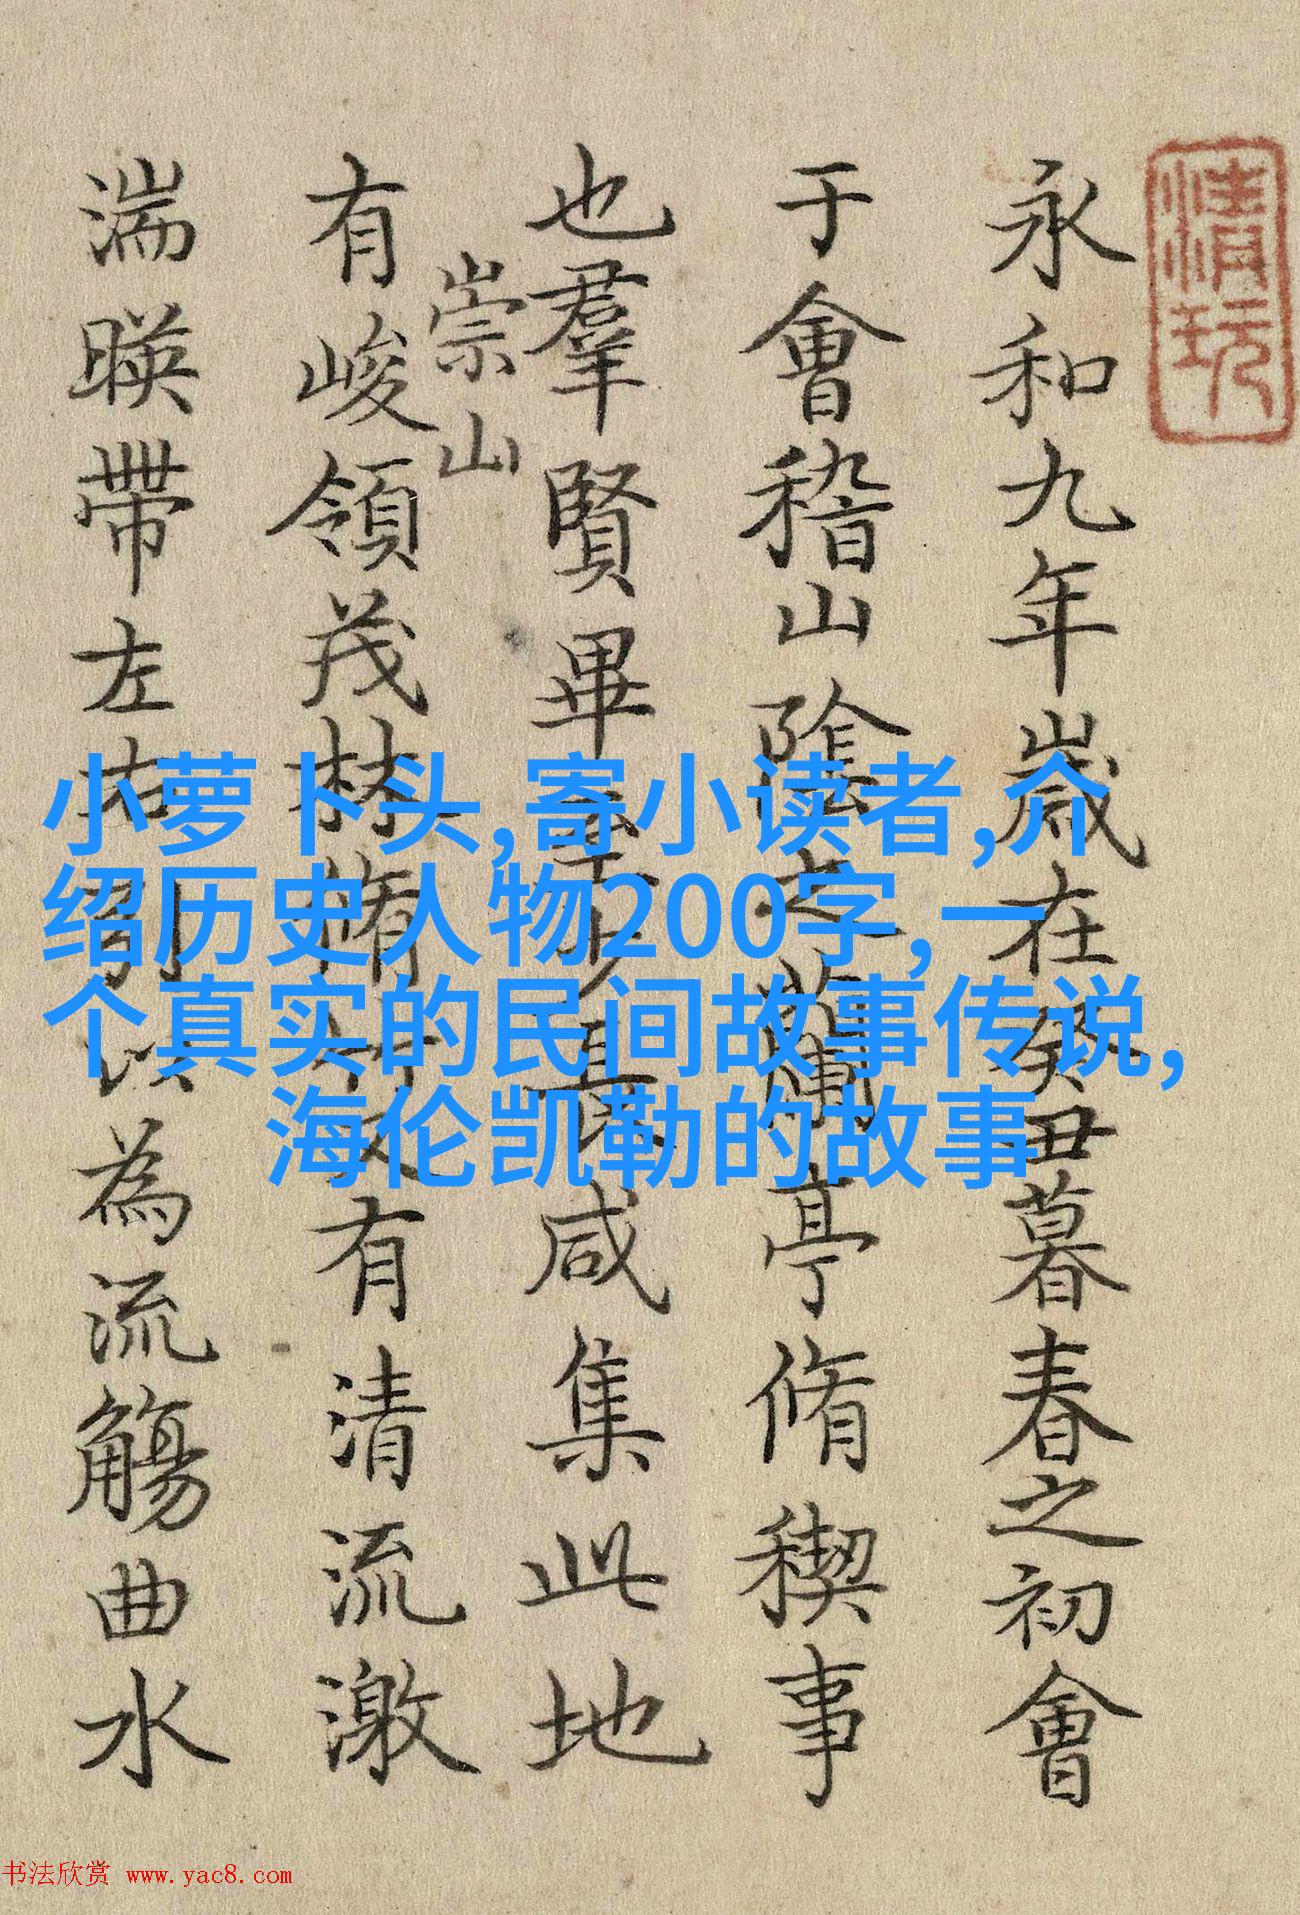 清玩
永和九年歲在癸丑暮春之初會
于會稽山陰之蘭亭脩稧事
也羣賢畢至少長咸集此地
崇山
有峻領茂林脩竹又有清流激
湍暎帶左右引以為流觴曲水
小萝卜头,寄小读者,介
绍历史人物200字,一
个真实的民间故事传说,
海伦凯勒的故事
书法欣赏 www.yac8.com